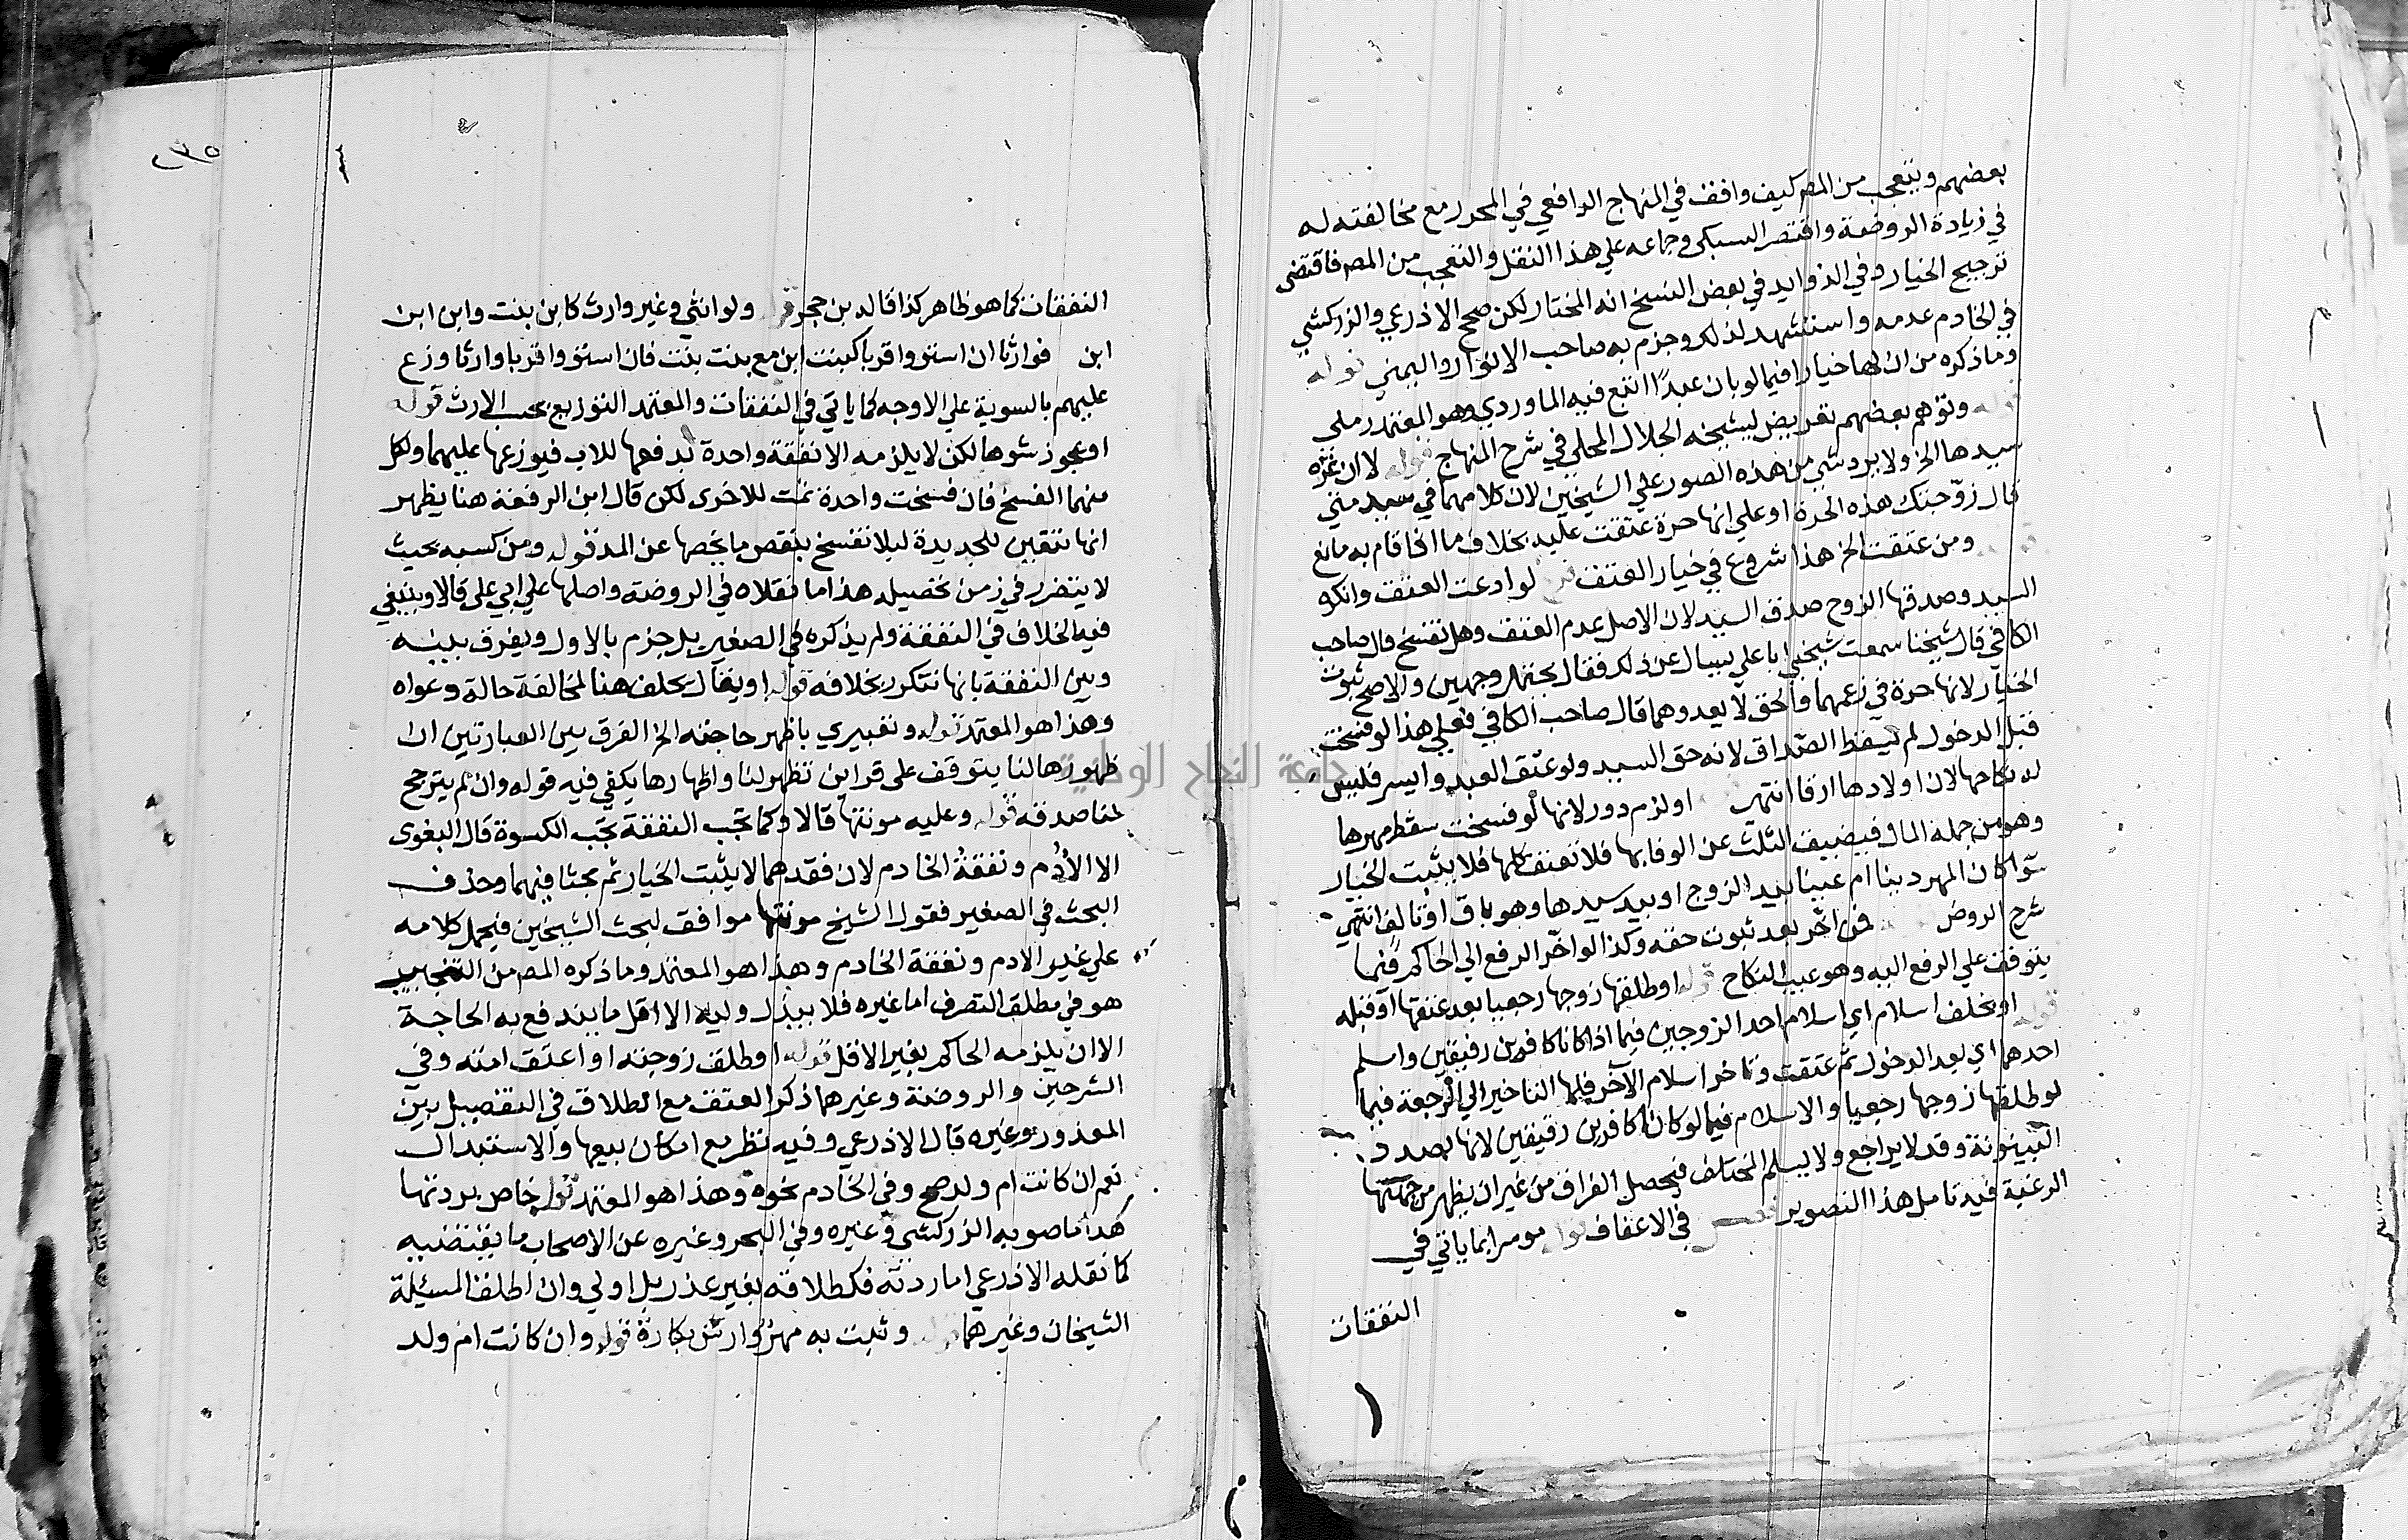 بعضهم وتتعجب من المص كيف وافق في المنهاج الرافعي في المحرر مع مخالفته له
في زيادة الروضة واقتصر السبكي وجماعه علي هذا النقل والتعجب من المص فاقتضى
ترجيح الخيار وفي الزوايد في بعض النسخ انه المختار لكن صحح الاذرعي والزركشي
في الخادم عدمه واستشهد لذلك وجزم به صاحب الانوار واليمني قوله
وما ذكره من ان لها خيارا فيما لو بان عبدًا اتبع فيه الماوردي وهو المعتمد رملي
قوله وتوهم بعضهم تعريض لشيخه الجلال المحلي في شرح المنهاج قوله لا ان غره
سيدها الخ ولا يرد شي من هذه الصور علي الشيخين لان كلامهما في سيد متي
قال زوّجتك هذه الحرة او علي انها حرة عتقت عليه بخلاف ما اذا قام به مانع
ومن عتقت الخ هذا شروع في خيار العتق لو ادعت العتق وانكر
السيد وصدقها الزوج صدق السيد لان الاصل عدم العتق وهل تفسخ قال صاحب
الكافي قال شيخنا سمعت شيخي ابا علي يسال عن ذلك فقال يحتمل وجهين والاصح ثبوت
الخيار لانها حرة في زعمهما والحق لا يعدوهما قال صاحب الكافي فعلي هذا لو فسخت
قبل الدخول لم يسقط الصداق لانه حق السيد ولو عتق العبد وايسر فليس
له نكاحها لان اولادها ارقا انتهى او لزم دور لانها لو فسخت سقط مهرها
وهو من جملة المال فيضيق الثلث عن الوفا بها فلا تعتق كلها فلا يثبت الخيار
سوّا كان المهر دينا ام عينا بيد الزوج او بيد سيدها وهو باق او تالف انتهى
شرح الروض فمن اخّر بعد ثبوت حقه وكذا لو اخّر الرفع الي الحاكم فيما
يتوقف علي الرفع اليه وهو عيب النكاح قوله او طلقها زوجها رجعيا بعد عتقها او قبله
قوله او تخلف اسلام اي اسلام احد الزوجين فيما اذا كانا كافرين رقيقين واسلم
احدهما اي بعد الدخول ثم عتقت وتاخر اسلام الآخر فلها التاخير الي الرجعة فيما
لو طلقها زوجها رجعيا والاسلام فيما لو كان كافرين رقيقين لانها بصدد
البينونة وقد لا يراجع ولا يسلم المختلف فيحصل الفراق من غير ان يظهر من جهتها
الرغبة فيه تامل هذا التصوير فصل في الاعفاف قوله موسرا بما ياتي في
النفقات
٢٣٥
النفقات كما هو ظاهر كذا قاله بن حجر قوله ولو انثى وغير وارث كابن بنت وابن ابن
ابن فوارثا ان استووا قربا كبنت ابن مع بنت بنت فان استووا قربا وارثا وزع
عليهم بالسوية علي الاوجه كما ياتي في النفقات والمعتمد التوزيع بحسب الارث قوله
او عجوز شوها لكن لا يلزمه الا نفقة واحدة يدفعها للاب فيوزعها عليهما ولكل
منهما الفسخ فان فسخت واحدة تمت للاخرى لكن قال ابن الرفعة هنا يظهر
انها تتعين للجديدة ليلا تفسخ بنقص ما يخصها عن المد قوله ومن كسبه بحيث
لا يتضرر في زمن تحصيله هذا ما نقلاه في الروضة واصلها علي ابي علي قالا وينبغي
فيه الخلاف في النفقة ولم يذكره في الصغير بل جزم بالاول ويفرق بينه
وبين النفقة بانها تتكرر بخلافه قوله او يقال يحلف هنا لمخالفة حاله دعواه
وهذا هو المعتمد قوله وتعبيري باظهر حاجته الخ الفرق بين العبارتين ان
ظهورها لنا يتوقف على قراين تظهر لنا واظهارها يكفي فيه قوله وان لم يترجح
لنا صدقه قوله وعليه مونتها قالا وكما تجب النفقة تجب الكسوة قال البغوي
الا الأدُم ونفقةُ الخادم لان فقدهما لا يثبت الخيار ثم بحثا فيهما وحذف
البحث في الصغير فقول الشيخ مونتها موافق لبحث الشيخين فيحمل كلامه
علي غير الادم ونفقة الخادم وهذا هو المعتمد وما ذكره المص من التخيير
هو في مطلق التصرف اما غيره فلا يبذل وليه الا اقل ما يندفع به الحاجة
الا ان يلزمه الحاكم بغير الاقل قوله او طلق زوجته او اعتق امته وفي
الشرحين والروضة وغيرهما ذكر العتق مع الطلاق في التفصيل بين
المعذور وغيره قال الاذرعي وفيه نظر مع امكان بيعها والاستبدال
نعم ان كانت ام ولد صح وفي الخادم نحوه وهذا هو المعتمد قوله خاص بردتها
كذا ما صوبه الزركشي وغيره وفي البحر وغيره عن الاصحاب ما يقتضيه
كما نقله الاذرعي اما ردته فكطلاقه بغير عذر بل اولي وان اطلق المسيلة
الشيخان وغيرهما قوله وثبت به مهر وارش بكارة قوله وان كانت ام ولد
جامعة النجاح الوطنية